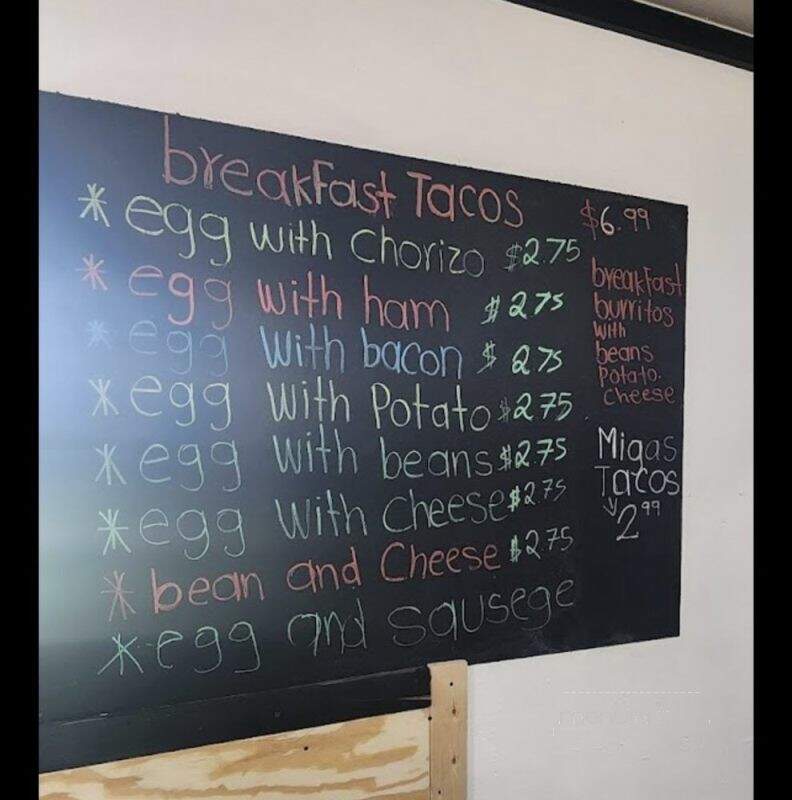 breakFast Tacos
* egg with chorizo $2.75
* egg with ham $2.75
* egg with bacon $2.75
* egg with Potato $2.75
* egg with beans $2.75
* egg with cheese $2.75
* bean and Cheese $2.75
* egg and sausege
$6.99
breakFast
burritos
with
beans
Potato.
Cheese
Migas
Tacos
2.99